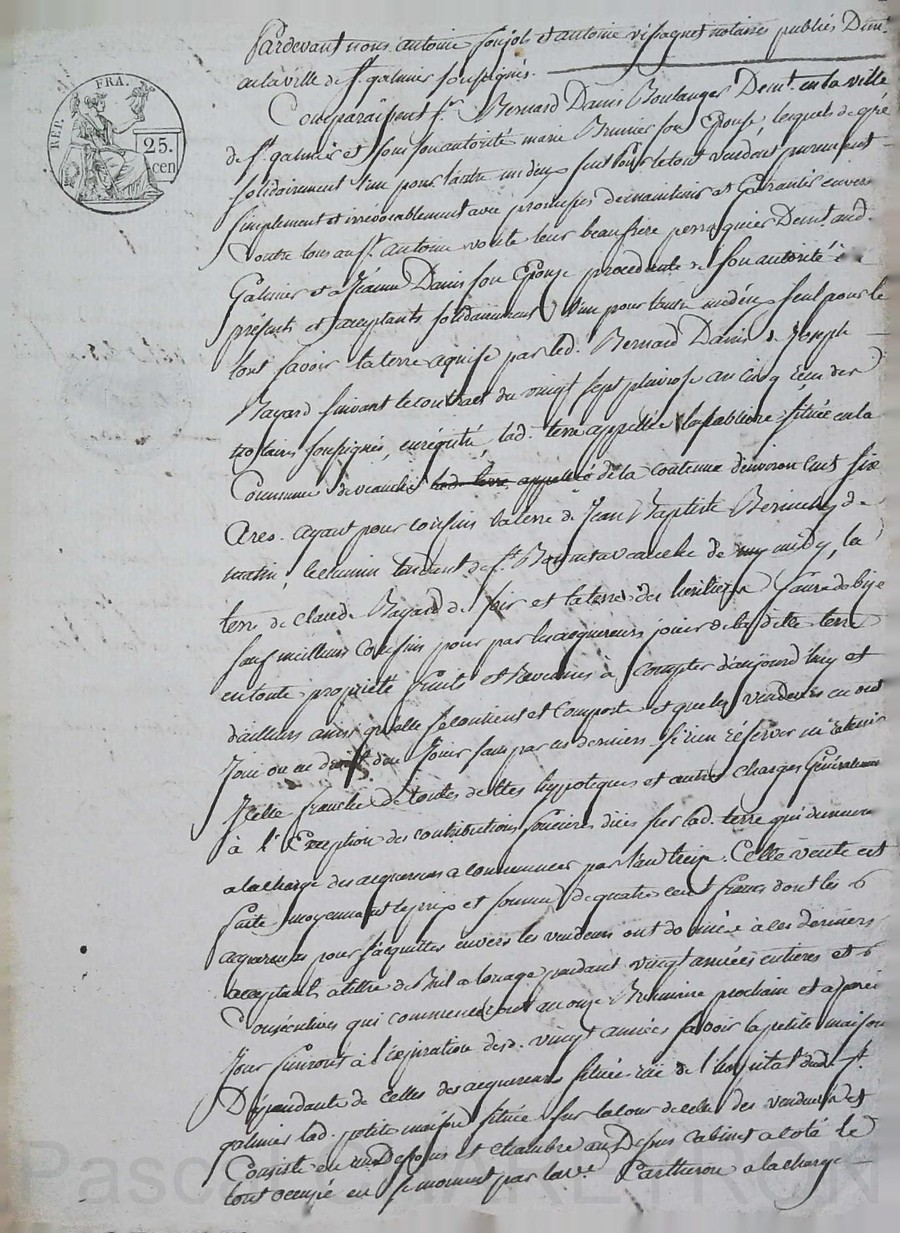 REP. FRA.
25.
cen
Pardevant nous antoine et antoine vissaguet notaires publics Dem.t
en la ville de st. galmier soussignés.
Comparaissent sr. Bernard Danis Boulanger Demt. en la ville
de st. galmier et sous son autorité marie Brunier son Epouse, lesquels de gré
solidairement l'un pour l'autre un deux seul pour le tout vendent purement
simplement et irrévocablement avec promesses de maintenir et Garantir envers
Contre tous au sr. Antoine voute leur beaufrère perruquier Demt. aud.
Galmier et a Jeanne Danis son Epouse procedante de son autorité
présents et acceptants solidairement l'un pour l'autre un deux seul pour le
tout savoir la terre aquise par led. Bernard Danis de Joseph
Bayard suivant le contrat du vingt sept pluviose an cinq
notaires soussignés, enregistré, lad. terre appellée la sabliere située en la
Commune de veauche lad. terre appellée de la contenue denviron cent six
ares. ayant pour confins la terre de Jean Baptiste de
matin, le chemin tendant de st. Bonnet a veauche de midy, la
terre de claude Bayard de soir et la terre des heritiers faure de bize
sauf meilleurs Confins pour par les acquereurs jouir de la ditte terre
en toute propriété fruits et Revenus à compter d'aujourd'huy et
d'ailleurs ainsi qu'elle se contient et comporte et que les vendeurs en ont
Joui ou eu droit d'en Jouir sans par ces derniers s'en rien réserver ni retenir
Icelle franche de toutes dettes hypoteques et autres charges Généralement
à l'Exception des contributions foncieres dues sur lad. terre qui demeurent
a la charge des acquereurs a commencer par l'an treize. Cette vente est
faite moyennant le prix et somme de quatre cent francs dont les
acquereurs pour s'acquitter envers les vendeurs ont donné à ces derniers
acceptants a titre de Bail a louage pendant vingt années entieres et
Consécutives qui commenceront au onze Brumaire prochain et a pareil
Jour finiront à l'expiration desd. vingt années savoir la petite maison
Dépendante de celles des acquereurs située rue de l'hopital dud. st.
galmier lad. petite maison située sur la cour de celle des vendeurs et
Consiste en un Dessous et chambre au Dessus Cabinet a coté le
tout occupé en ce moment par la ve. a la charge